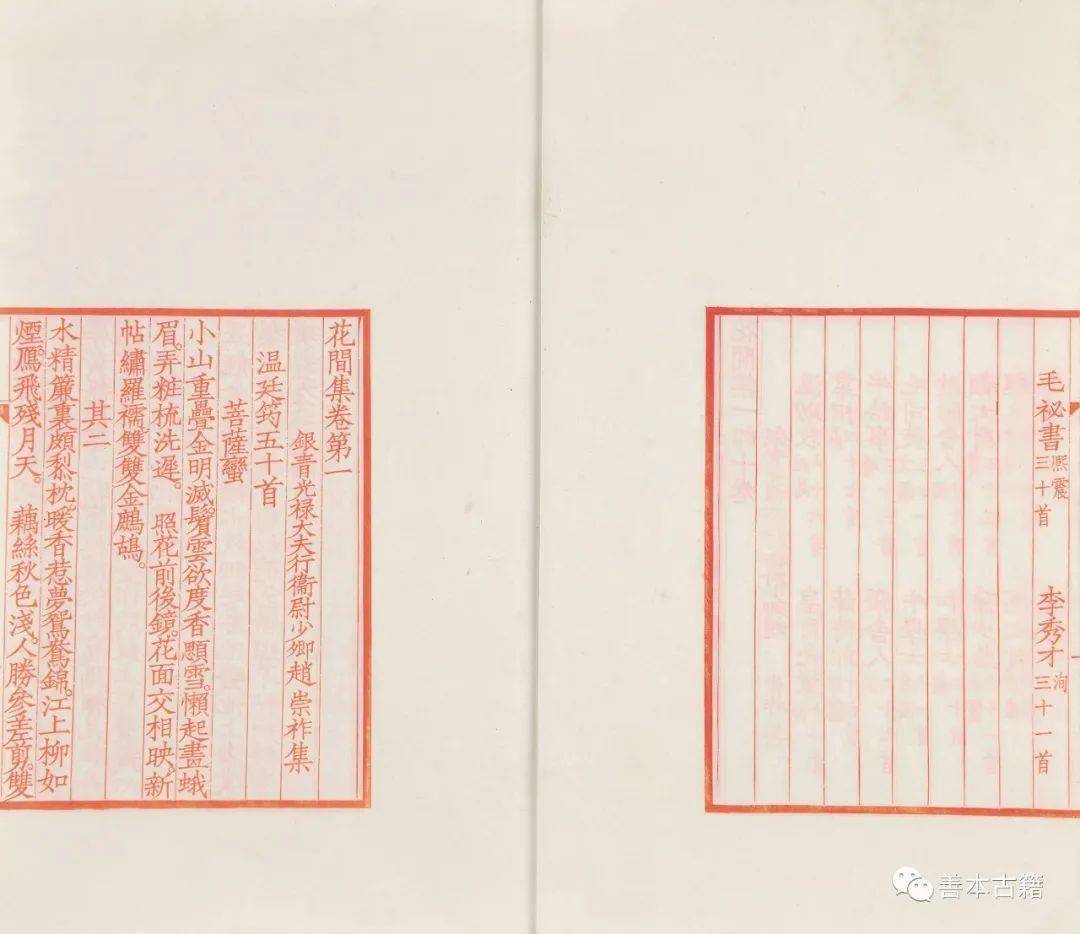 毛祕書熙震三十首　李秀才洵三十一首
花間集卷第一
銀青光禄大夫行衞尉少卿趙崇祚集
温廷筠五十首
菩薩蠻
小山重疊金明滅。鬢雲欲度香顋雪。懶起畫蛾
眉。弄粧梳洗遲。　照花前後鏡。花面交相映。新
帖繡羅襦。雙雙金鷓鴣。
其二
水精簾裏頗黎枕。暖香惹夢鴛鴦錦。江上柳如
煙。鴈飛殘月天。　藕絲秋色淺。人勝參差剪。雙
善本古籍